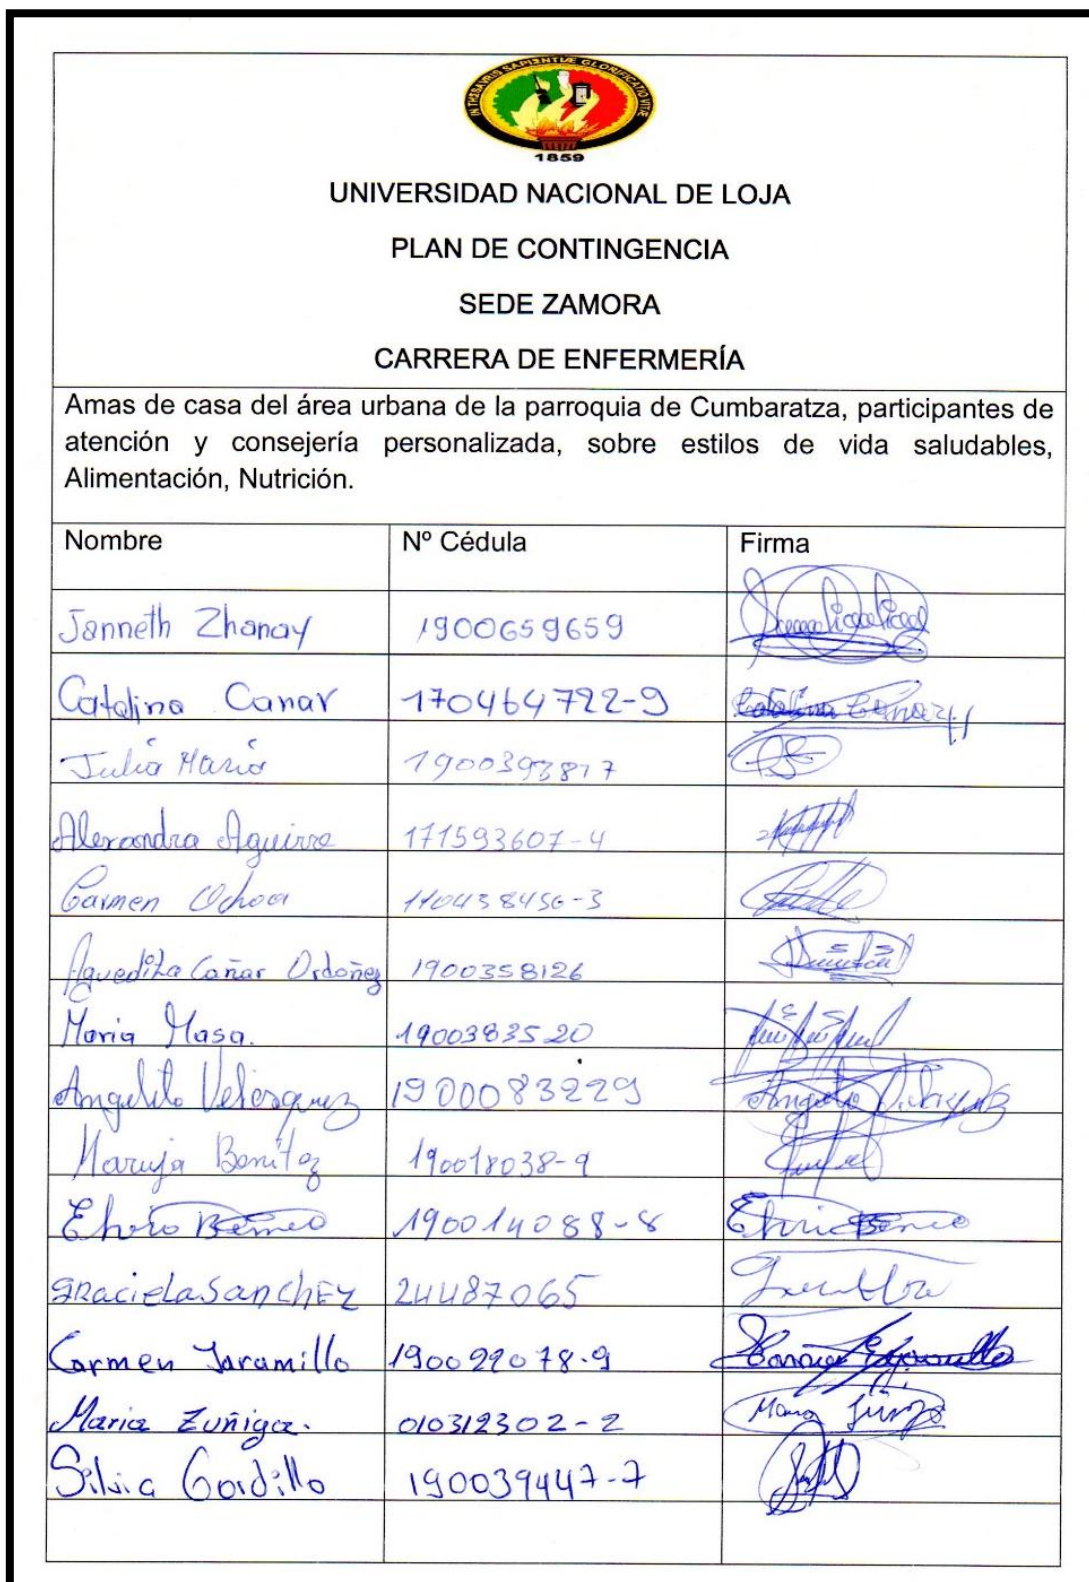 IN THESAVRIS SAPIENTIVE GLORIFICATIO VITAE
1859
UNIVERSIDAD NACIONAL DE LOJA
PLAN DE CONTINGENCIA
SEDE ZAMORA
CARRERA DE ENFERMERÍA
Amas de casa del área urbana de la parroquia de Cumbaratza, participantes de
atención y consejería personalizada, sobre estilos de vida saludables,
Alimentación, Nutrición.
Nombre Nº Cédula Firma
Janneth Zhanay 1900659659
Catalina Canar 170464722-9 Catalina Cañar
Julia Maria 1900393817
Alexandra Aguirre 171593607-4
Carmen Ochoa 110438456-3
Aguedita Cañar Ordoñez 1900358126
Maria Masa. 1900383520
Angelito Velesquez 1900083229
Maruja Benitez 190018038-9
190014088-8
gracielasanchez 24487065
Carmen Jaramillo 190029078-9
Maria Zuñiga. 010312302-2
Silvia Gordillo 190039447-7